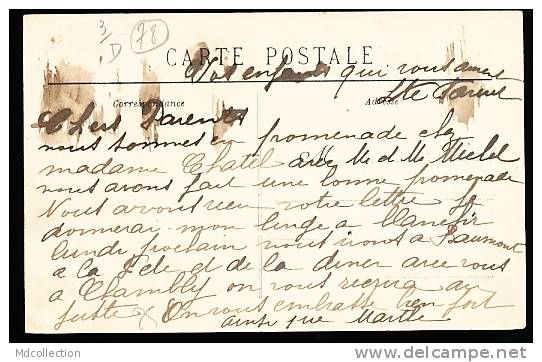 3/D 78
CARTE POSTALE
Correspondance
Adresse
Vos enfants qui vous aiment
Chers Parents
nous sommes en promenade chez
madame Chatel avec M et M Michel
nous avons fait une bonne promenade
Nous avons recu votre lettre je
donnerai mon linge a blanchir
lundi prochain nous irons a Beaumont
a la Fete et de la diner avec vous
a Chambly on vous recevra au
juste On vous embrasse bien fort
ainsi que Marthe
Mdcollection
www.delcampe.net